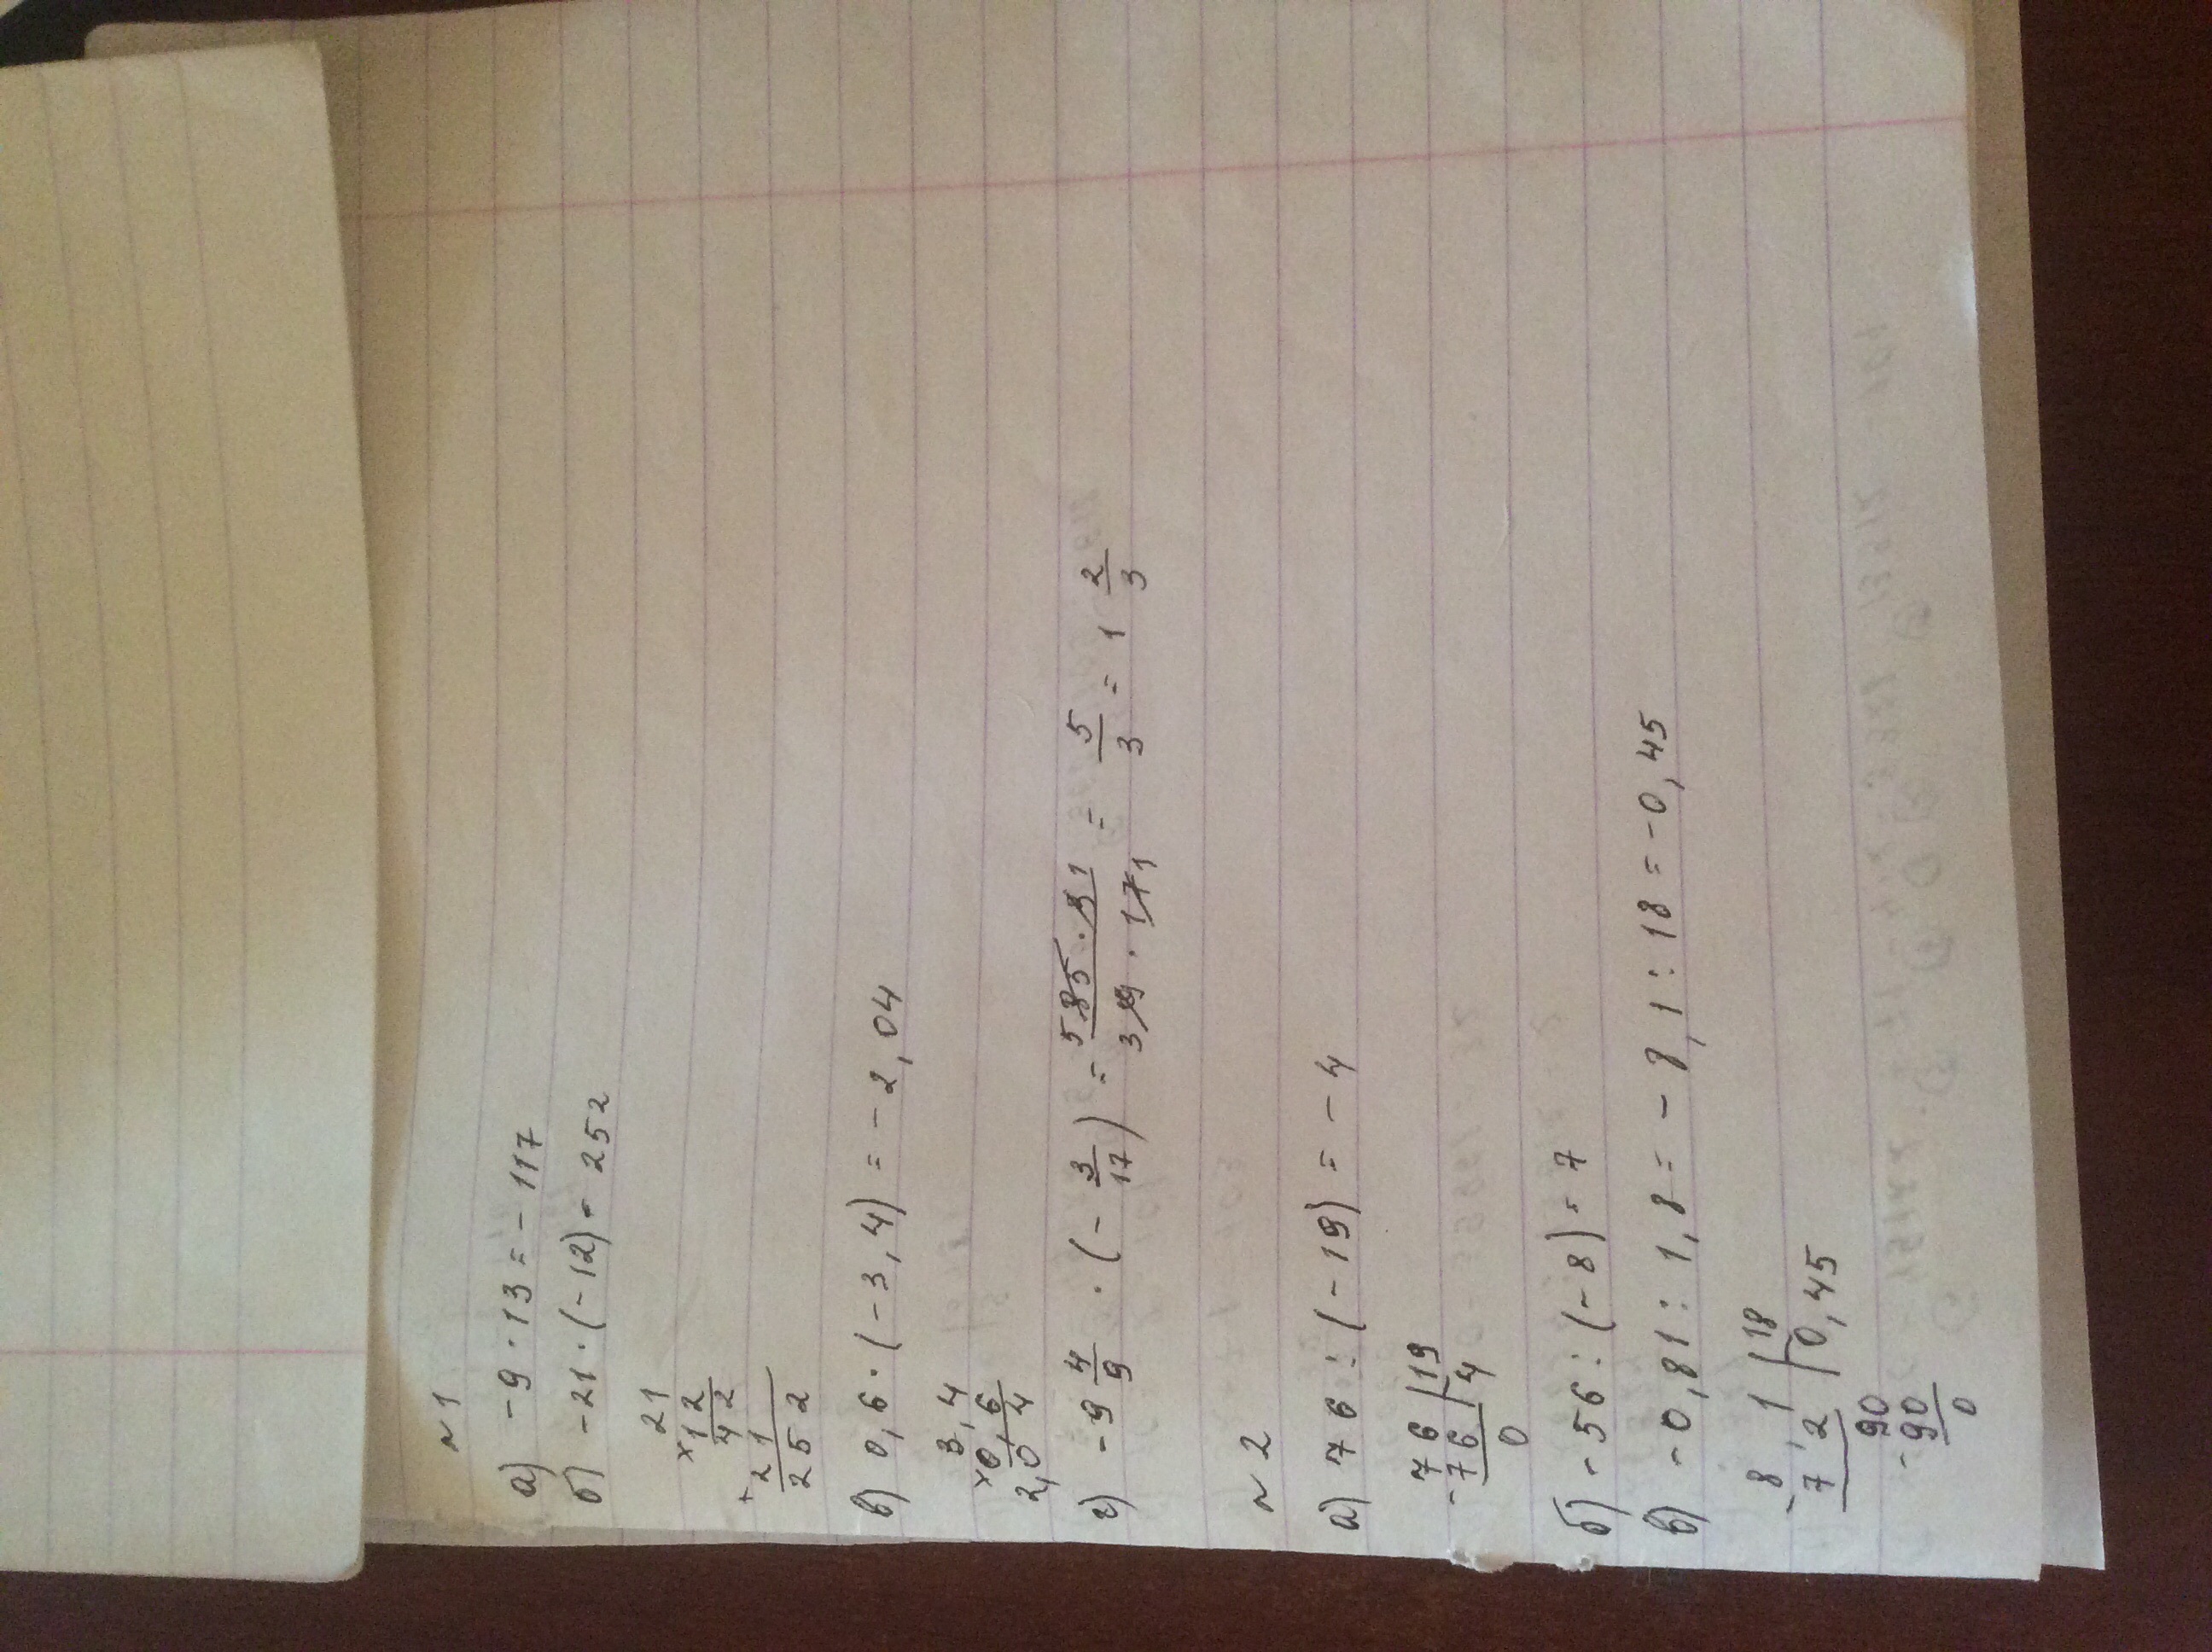 № 1
а) -9 · 13 = -117
б) -21 · (-12) = 252
21
×12
42
+21
252
в) 0,6 · (-3,4) = -2,04
3,4
×0,6
2,04
г) -9 4/9 · (-3/17) = 5 85 · 3 1 / 3 9 · 17 1 = 5/3 = 1 2/3
№ 2
а) 76 : (-19) = -4
-76 | 19
76 | 4
0
б) -56 : (-8) = 7
в) -0,81 : 1,8 = -8,1 : 18 = -0,45
-8,1 | 18
7 2 | 0,45
90
-90
0